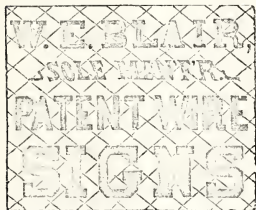 W. E. BLAIR,
SOLE MANF'R.
PATENT WIRE
SIGNS